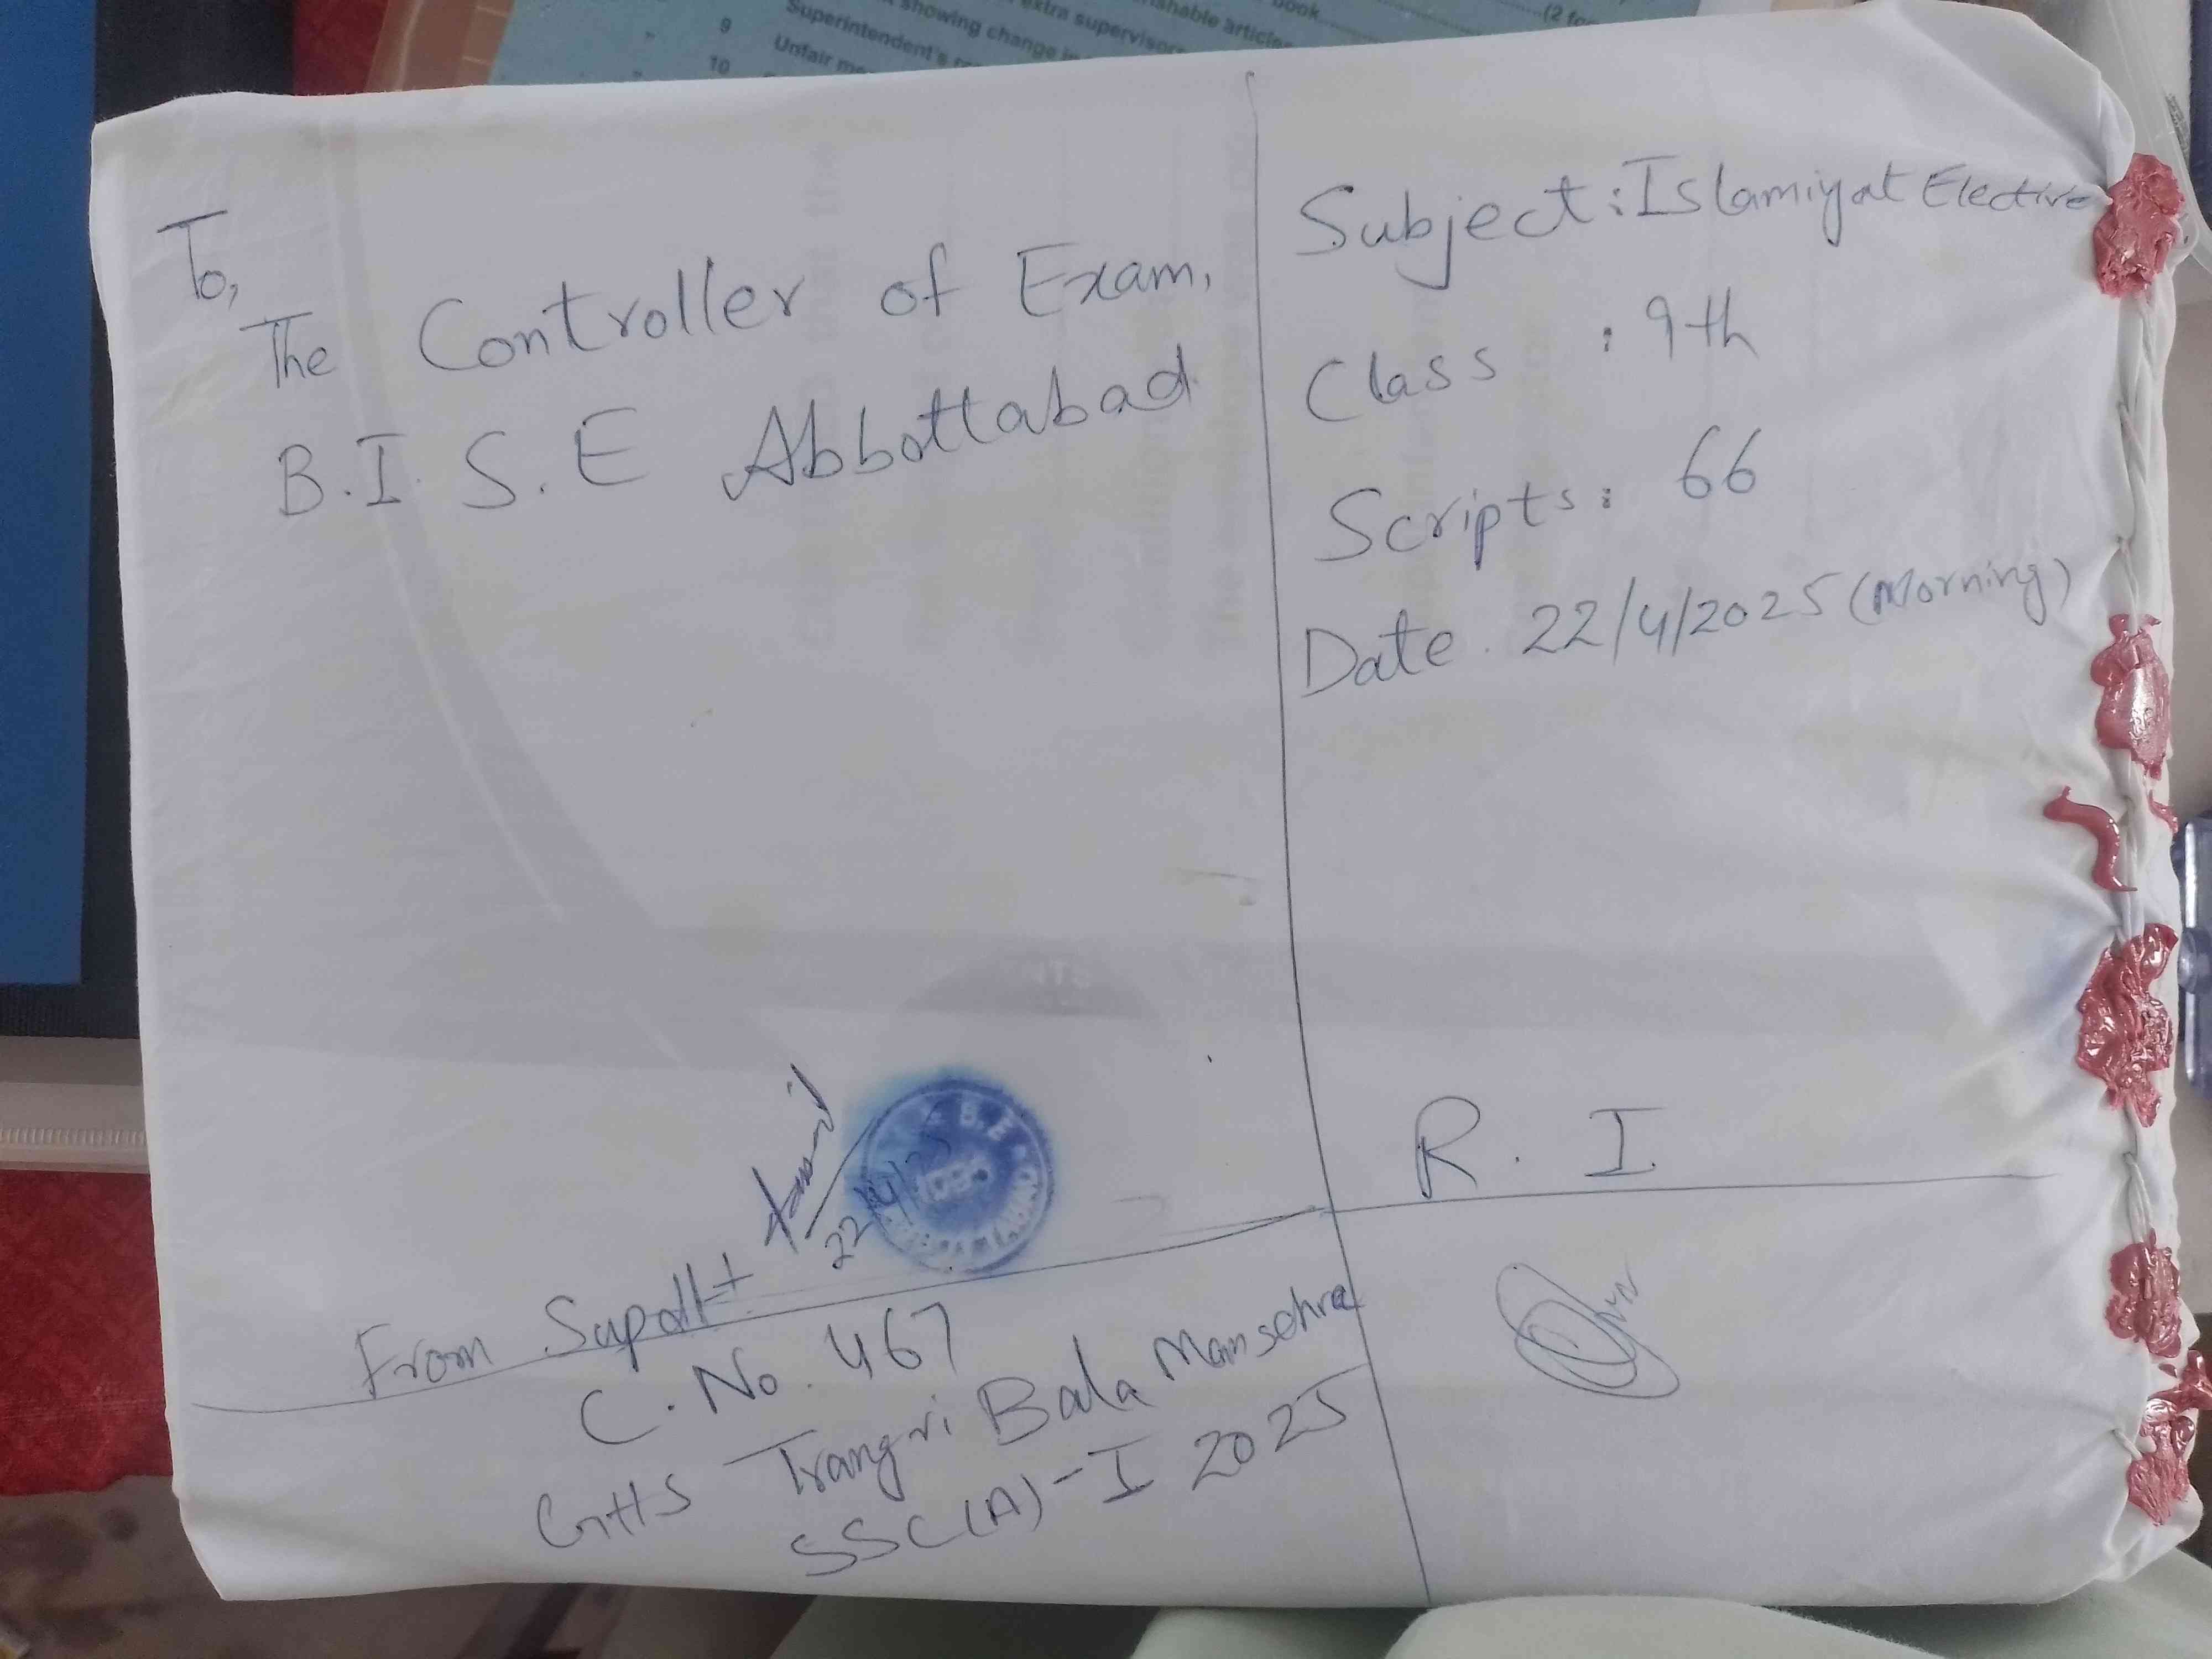 9 Superintendent's
showing change in
extra supervisors
articles
book
(2 for
10 Unfair
To,
The Controller of Exam,
B.I.S.E Abbottabad
Subject: Islamiyat Elective
Class : 9th
Scripts: 66
Date. 22/4/2025 (Morning)
22/4/25
B.E
R. I
From Supdtt
C. No. 467
GHS Trangri Bala Mansehra
SSC(A)-I 2025